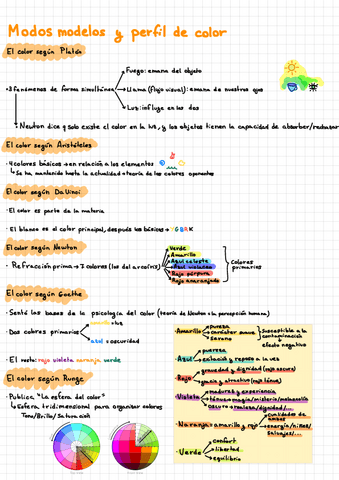 Modos modelos y perfil de color
El color según Platón
Fuego: emana del objeto
3 fenómenos de forma simultánea
Llama (flujo visual): emana de nuestros ojos
Luz: influye en los dos
Newton dice q solo existe el color en la luz, y los objetos tienen la capacidad de absorber/rechazar
El color según Aristóteles
4 colores básicos → en relación a los elementos
Se ha mantenido hasta la actualidad → teoría de los colores oponentes
El color según Da Vinci
El color es parte de la materia
El blanco es el color principal, después los básicos → Y G B R K
El color según Newton
Refracción prisma → 7 colores (los del arcoíris)
Verde
Amarillo
Azul celeste
Azul violáceo
Rojo púrpura
Rojo anaranjado
Colores primarios
El color según Goethe
Sentó las bases de la psicología del color (teoría de Newton + la percepción humana)
Dos colores primarios
amarillo = luz
azul = oscuridad
El resto: rojo violeta naranja verde
El color según Runge
Publica "La esfera del color"
Esfera tridimensional para organizar colores
Tono/Brillo/Saturación
Amarillo
pureza
carácter suave
sereno
Susceptible a la
contaminación y
efecto negativo
Azul
pureza
excitación y reposo a la vez
Rojo
gravedad y dignidad (rojo oscuro)
gracia y atractivo (rojo claro)
Violeta
madurez y experiencia
término magia/misterio/melancolía
oscuro → realeza/dignidad/...
Naranja: amarillo y rojo
cualidades de ambos
energía/niñez/
Salvajes/...
Verde
confort
libertad
equilibrio